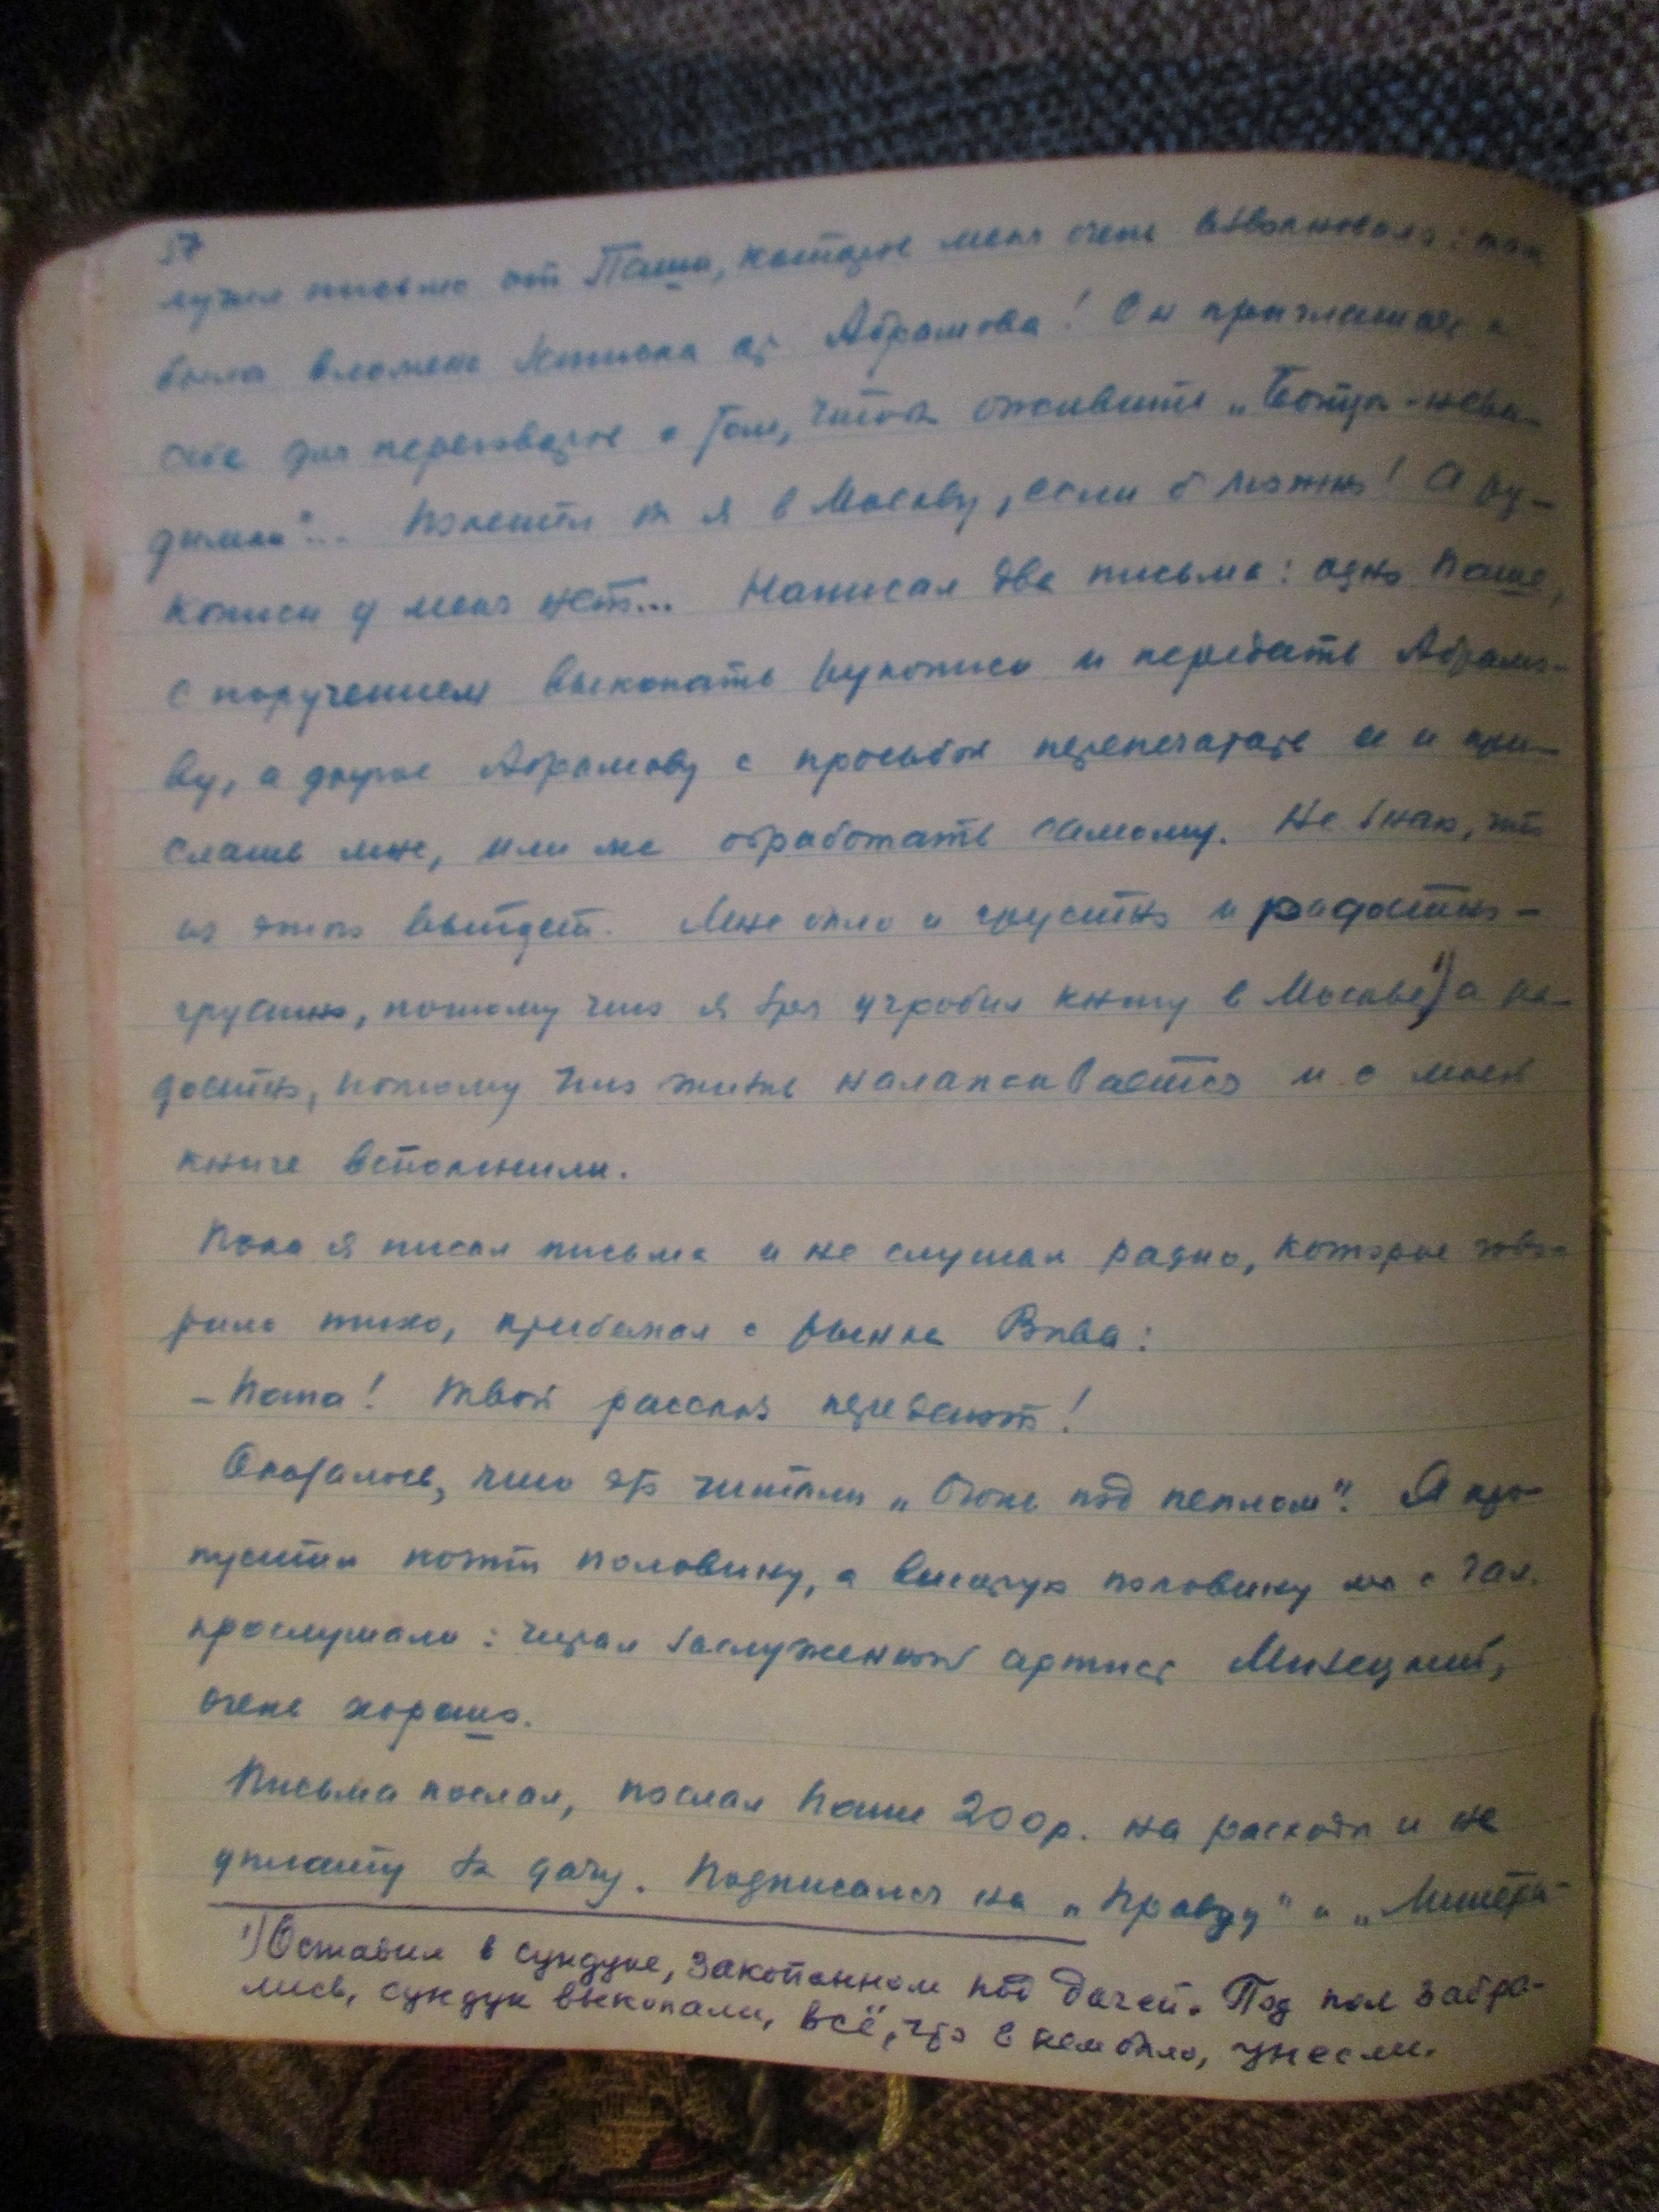 57
лучил письмо от Паши, которое меня очень взволновало: там
была вложена записка от Абрамова! Он приглашает к
себе для переговоров о том, чтобы оживить „Бойцы-неви-
димки"... Полетел бы я в Москву, если б можно! А ру-
кописи у меня нет... Написал два письма: одно Паше,
с поручением выкопать рукописи и передать Абрамо-
ву, а другое Абрамову с просьбой перепечатать ее и при-
слать мне, или же обработать самому. Не знаю, что
из этого выйдет. Мне было и грустно и радостно -
грустно, потому что я зря угробил книгу в Москве¹) а ра-
достно, потому что жизнь налаживается и о моей
книге вспомнили.
Пока я писал письма и не слушал радио, которое гово-
рило тихо, прибежал с рынка Вива:
- Папа! Твой рассказ передают!
Оказалось, что это читали „Огонь под пеплом". Я про-
пустил почти половину, а вторую половину мы с Гал.
прослушали: читал заслуженный артист
очень хорошо.
Письма послал, послал Паше 200р. на расходы и на
уплату за дачу. Подписался на „Правду" и „Литера-
¹) Оставил в сундуке, закопанном под дачей. Под пол забра-
лись, сундук выкопали, всё, что в нем было, унесли.